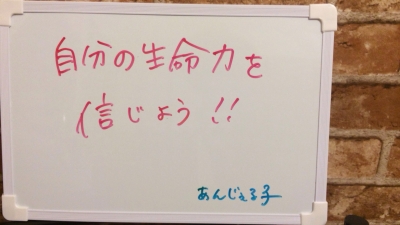 自分の生命力を
信じよう!!
あんじぇる子